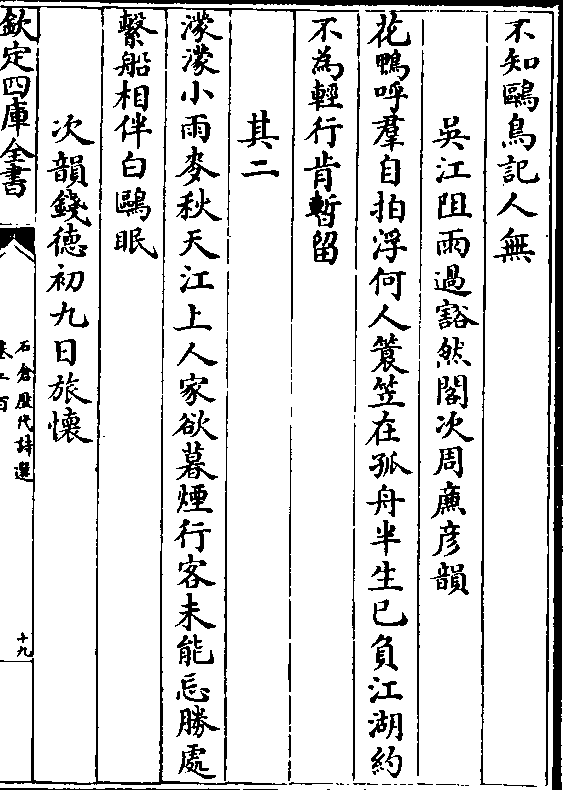 不知鷗鳥記人無
吳江阻雨過豁然閣次周薦彥韻
花鴨呼羣自拍浮何人簑笠在孤舟半生已負江湖約
不為輕行肯暫留
其二
濛濛小雨麥秋天江上人家欲暮煙行客未能忘勝處
繫船相伴白鷗眠
次韻錢德初九日旅懷
欽定四庫全書
石倉歷代詩選
十九